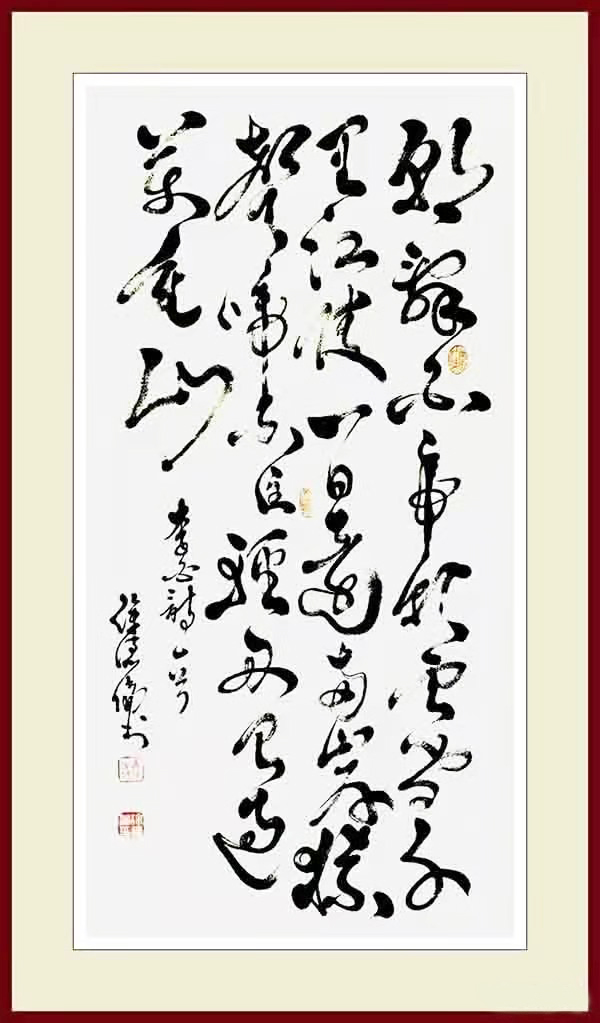 朝辭白帝彩雲間千
里江陵一日還兩岸猿
聲啼不住輕舟已過
萬重山
李白詩一首